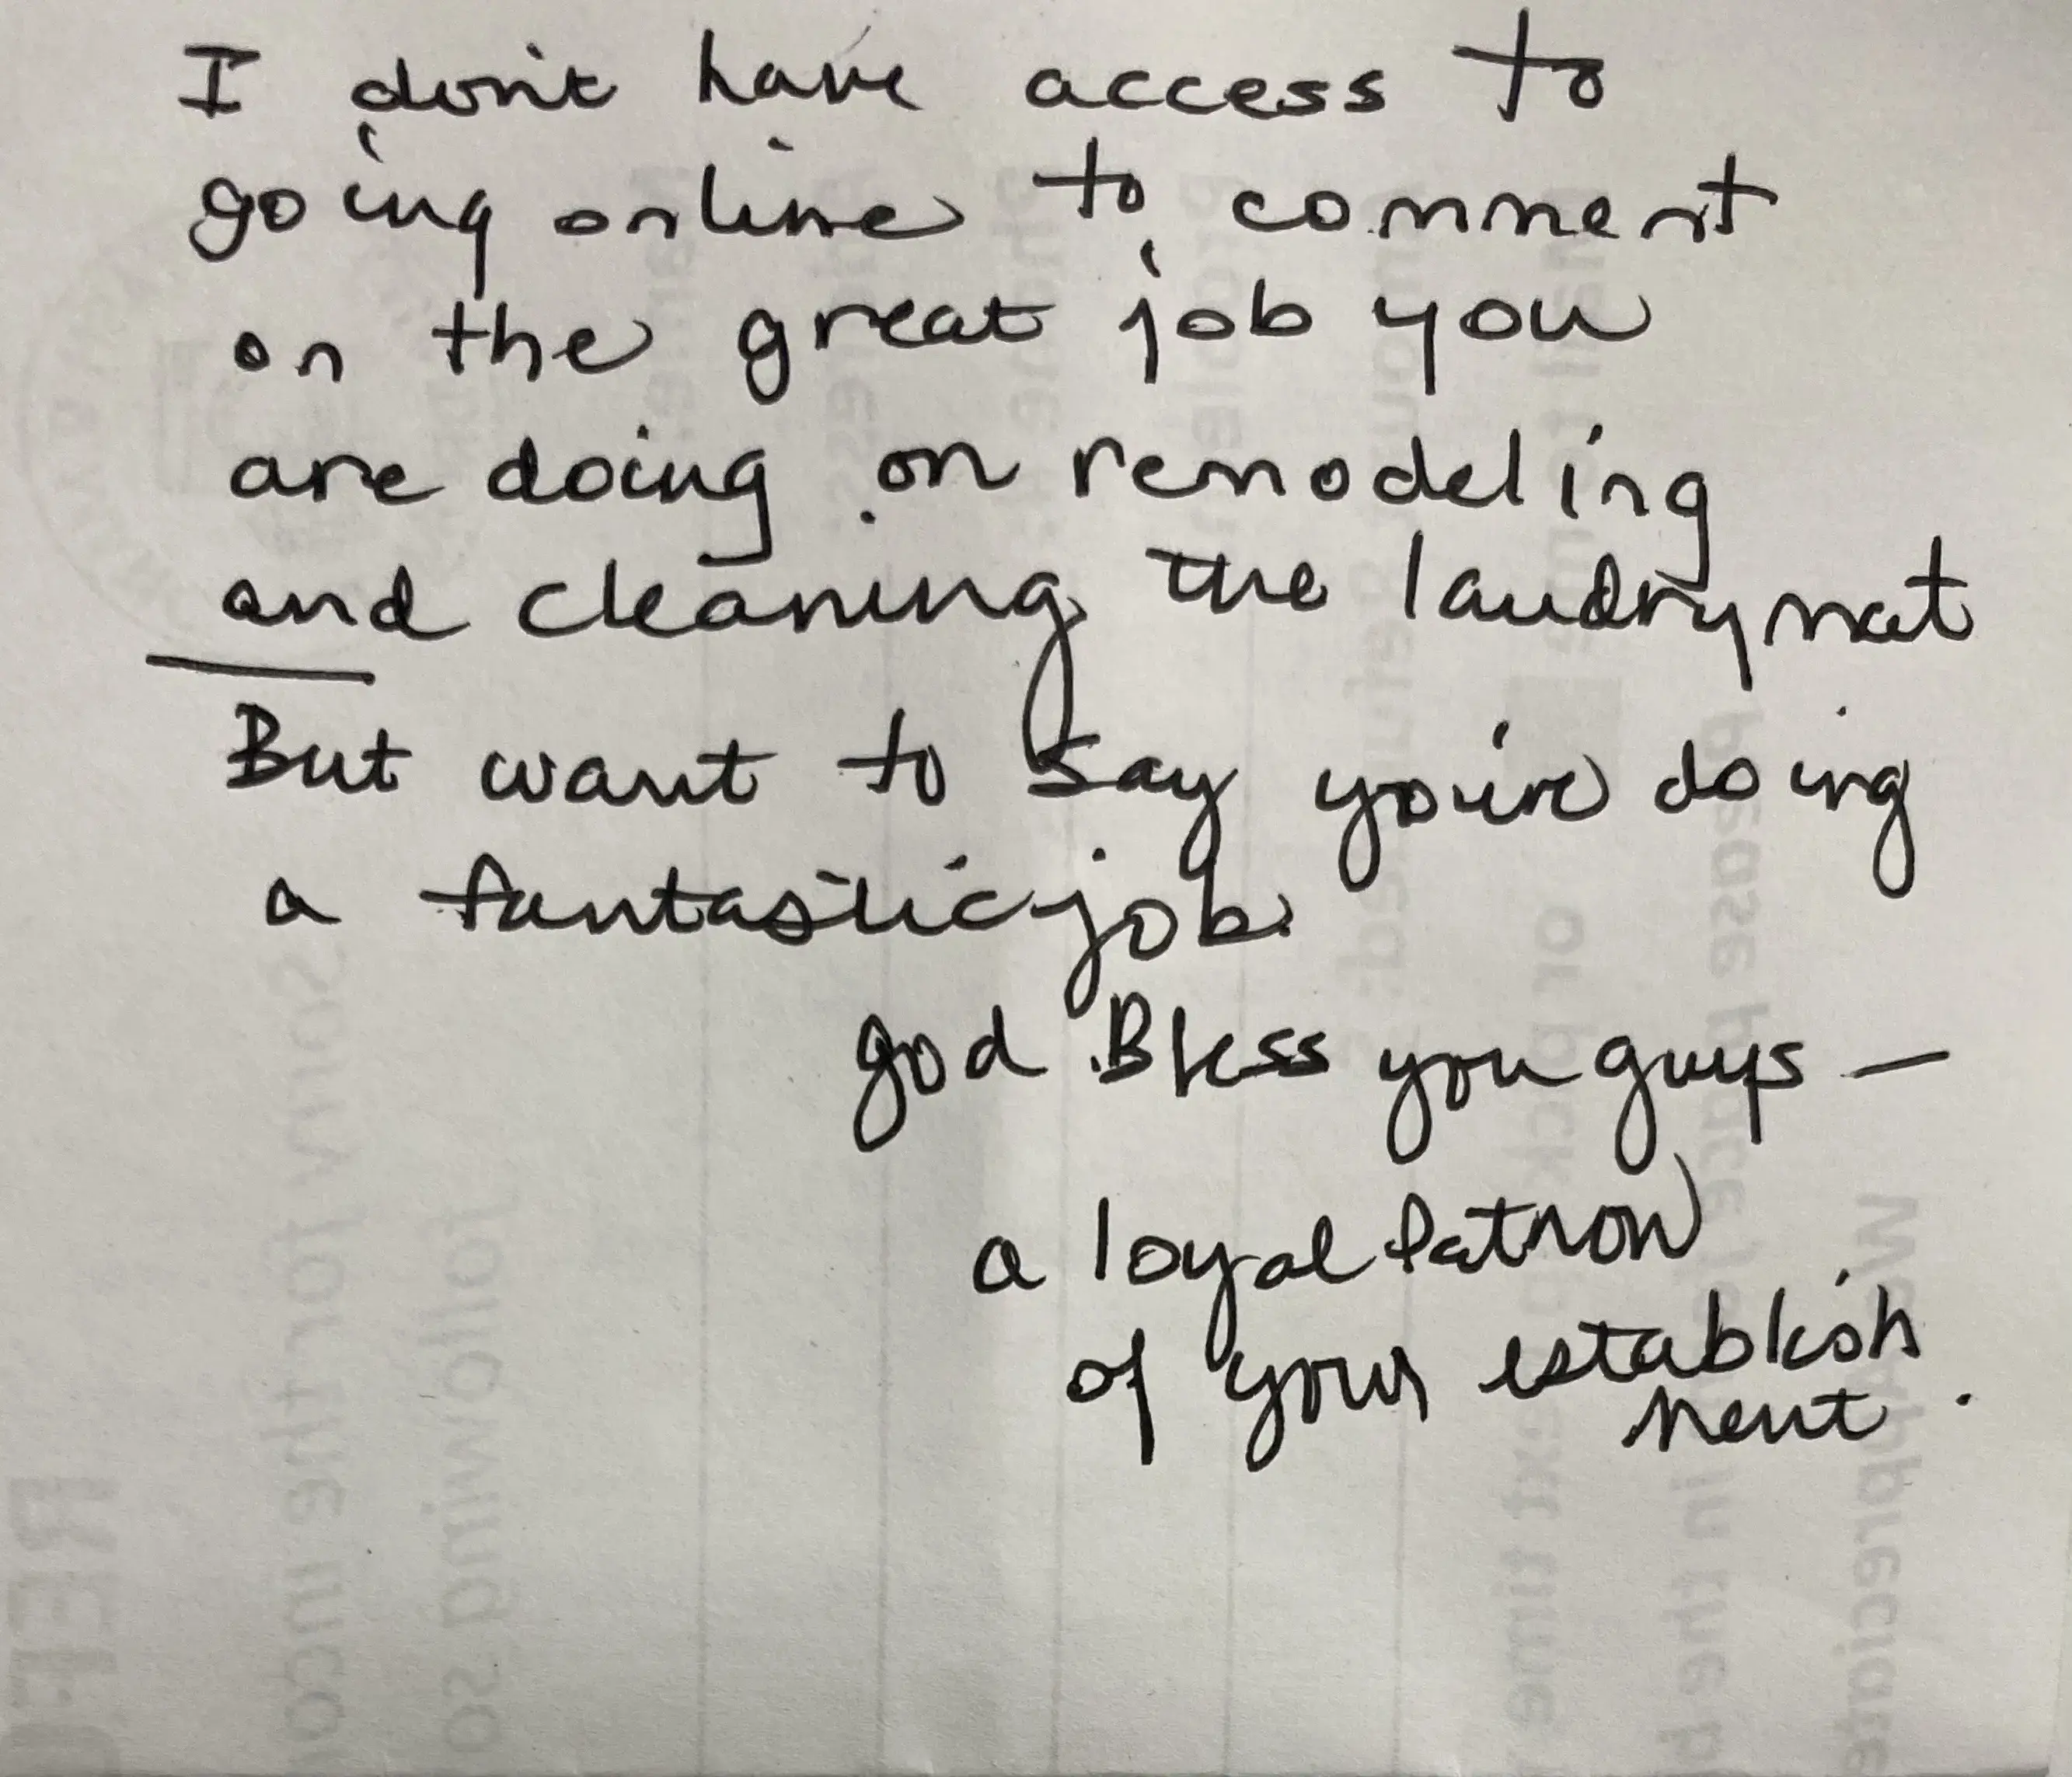 I don't have access to
going online to comment
on the great job you
are doing on remodeling
and cleaning the laudrymat
But want to say you're doing
a fantastic job.
god Bless you guys —
a loyal Patron
of your establish
ment.